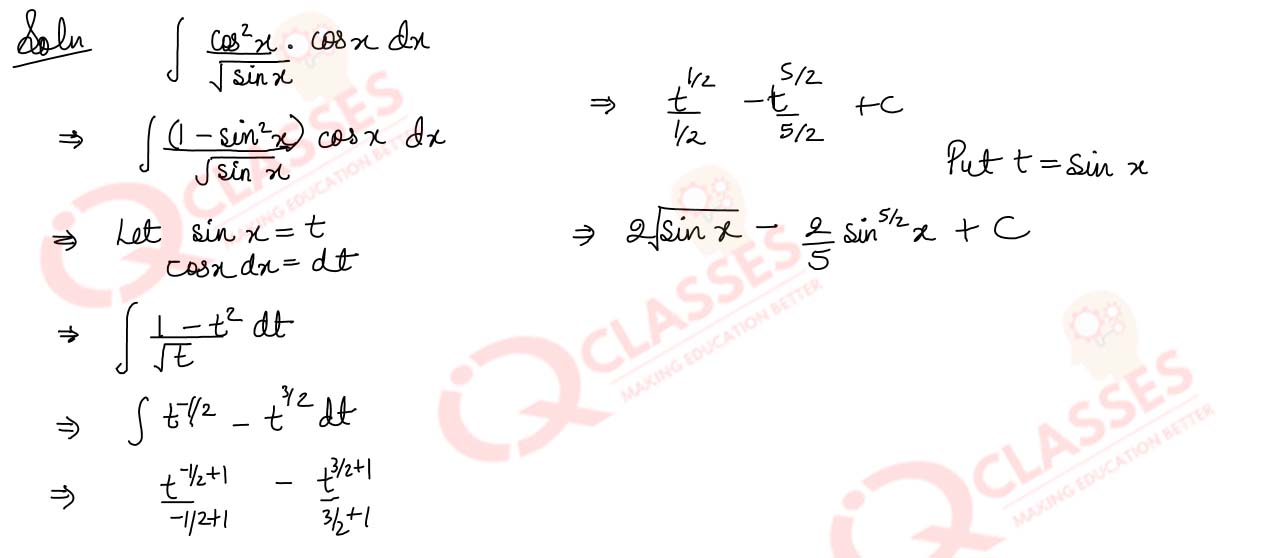 Soln ∫ cos²x/√sin x · cos x dx
⇒ ∫ (1 − sin²x)/√sin x cos x dx
⇒ Let sin x = t
cos x dx = dt
⇒ ∫ 1 − t²/√t dt
⇒ ∫ t^-1/2 − t^3/2 dt
⇒ t^-1/2+1/-1/2+1 − t^3/2+1/3/2+1
⇒ t^1/2/1/2 − t^5/2/5/2 + C
Put t = sin x
⇒ 2√sin x − 2/5 sin^5/2 x + C
IQ CLASSES
MAKING EDUCATION BETTER
IQ CLASSES
MAKING EDUCATION BETTER
IQ CLASSES
MAKING EDUCATION BETTER